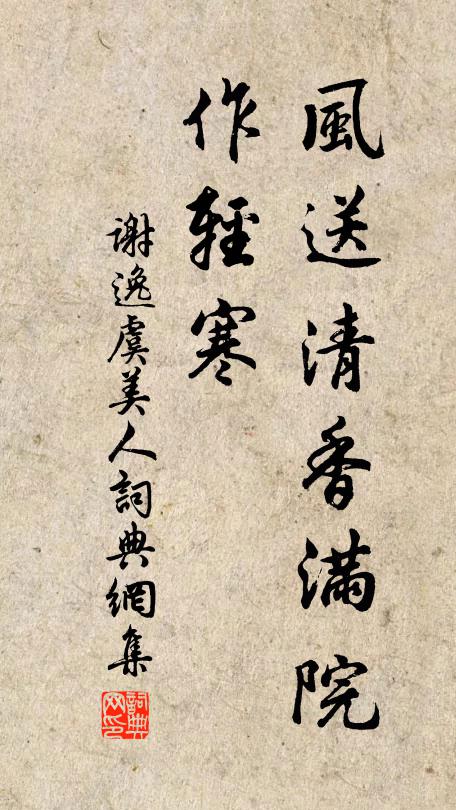 風送清香滿院
作輕寒
謝逸虞美人詞典網集
詞典网印